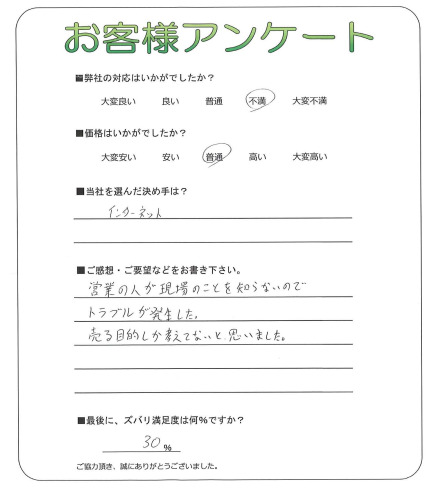 お客様アンケート
■弊社の対応はいかがでしたか？
大変良い 良い 普通 不満 大変不満
■価格はいかがでしたか？
大変安い 安い 普通 高い 大変高い
■当社を選んだ決め手は？
インターネット
■ご感想・ご要望などをお書き下さい。
営業の人が現場のことを知らないので
トラブルが発生した。
売る目的しか考えてないと思いました。
■最後に、ズバリ満足度は何％ですか？
30％
ご協力頂き、誠にありがとうございました。